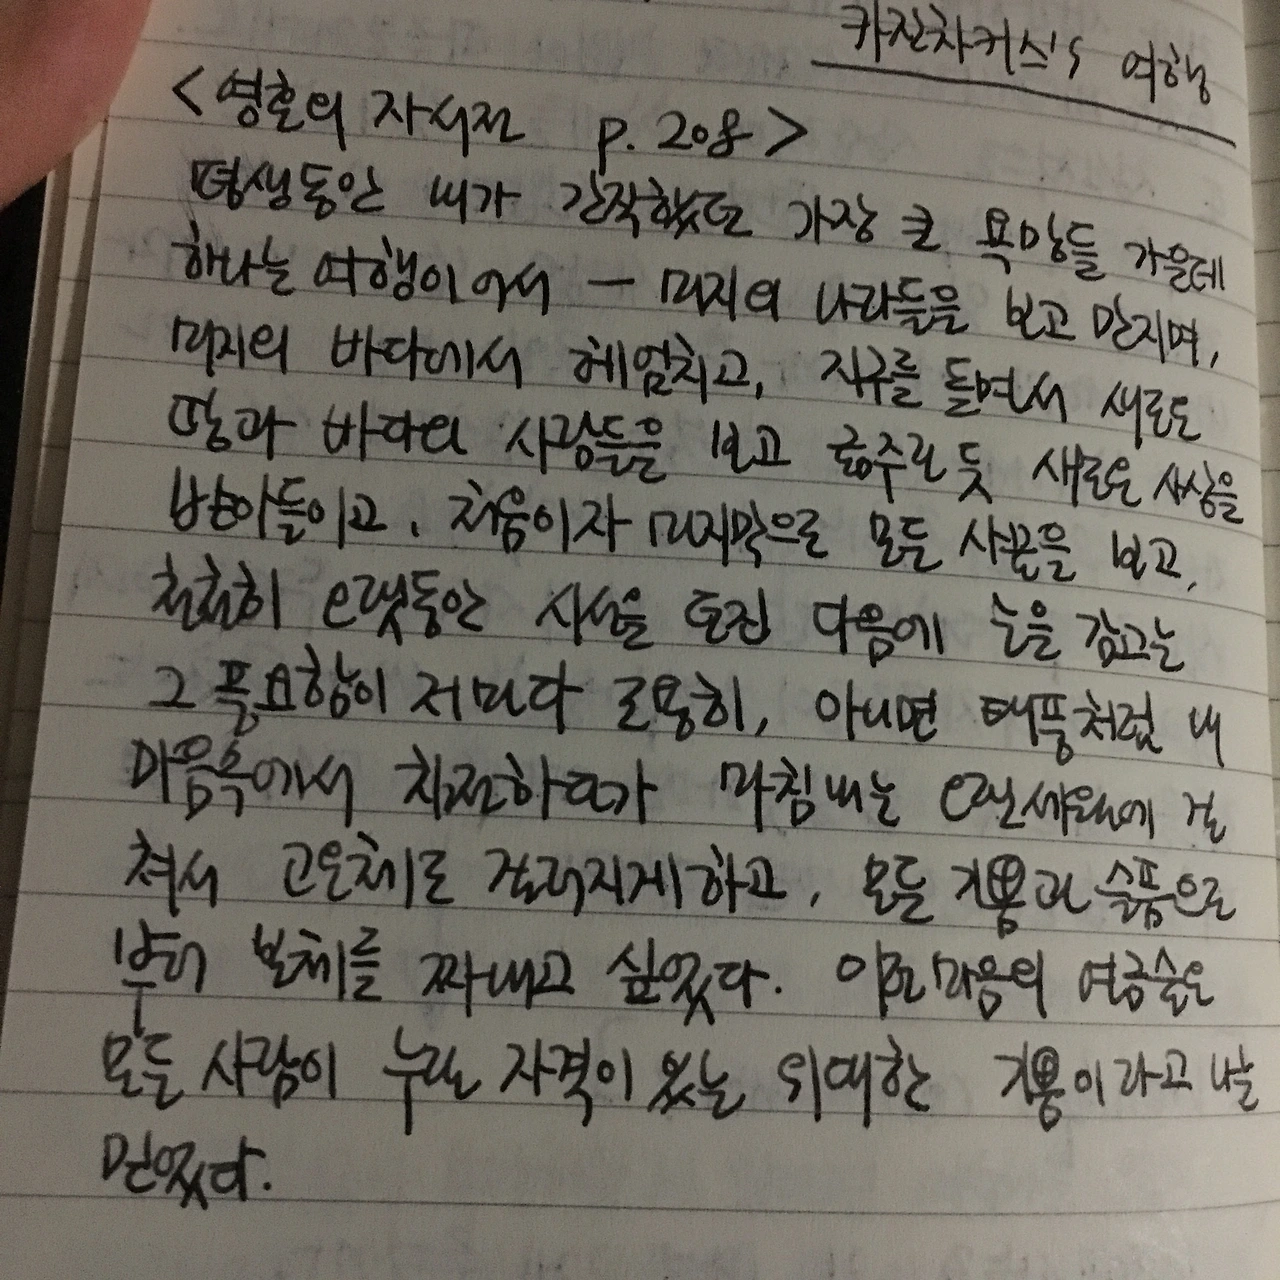 카잔차키스's 여행
<영혼의 자서전 p. 208>
평생동안 내가 간직했던 가장 큰 욕망들 가운데
하나는 여행이어서 — 미지의 나라들을 보고 만지며,
미지의 바다에서 헤엄치고, 지구를 돌면서 새로운
땅과 바다와 사람들을 보고 굶주린 듯 새로운 사상을
받아들이고, 처음이자 마지막으로 모든 사물을 보고,
천천히 오랫동안 시선을 던진 다음에 눈을 감고는
그 풍요함이 저마다 조용히, 아니면 태풍처럼 내
마음속에서 침전하다가 마침내는 오랜세월에 걸
쳐서 고운체로 걸러지게하고, 모든 기쁨과 슬픔으로
부터 본체를 짜내고 싶었다. 이런 마음의 연금술은
모든 사람이 누릴 자격이 있는 위대한 기쁨이라고 나는
믿었다.